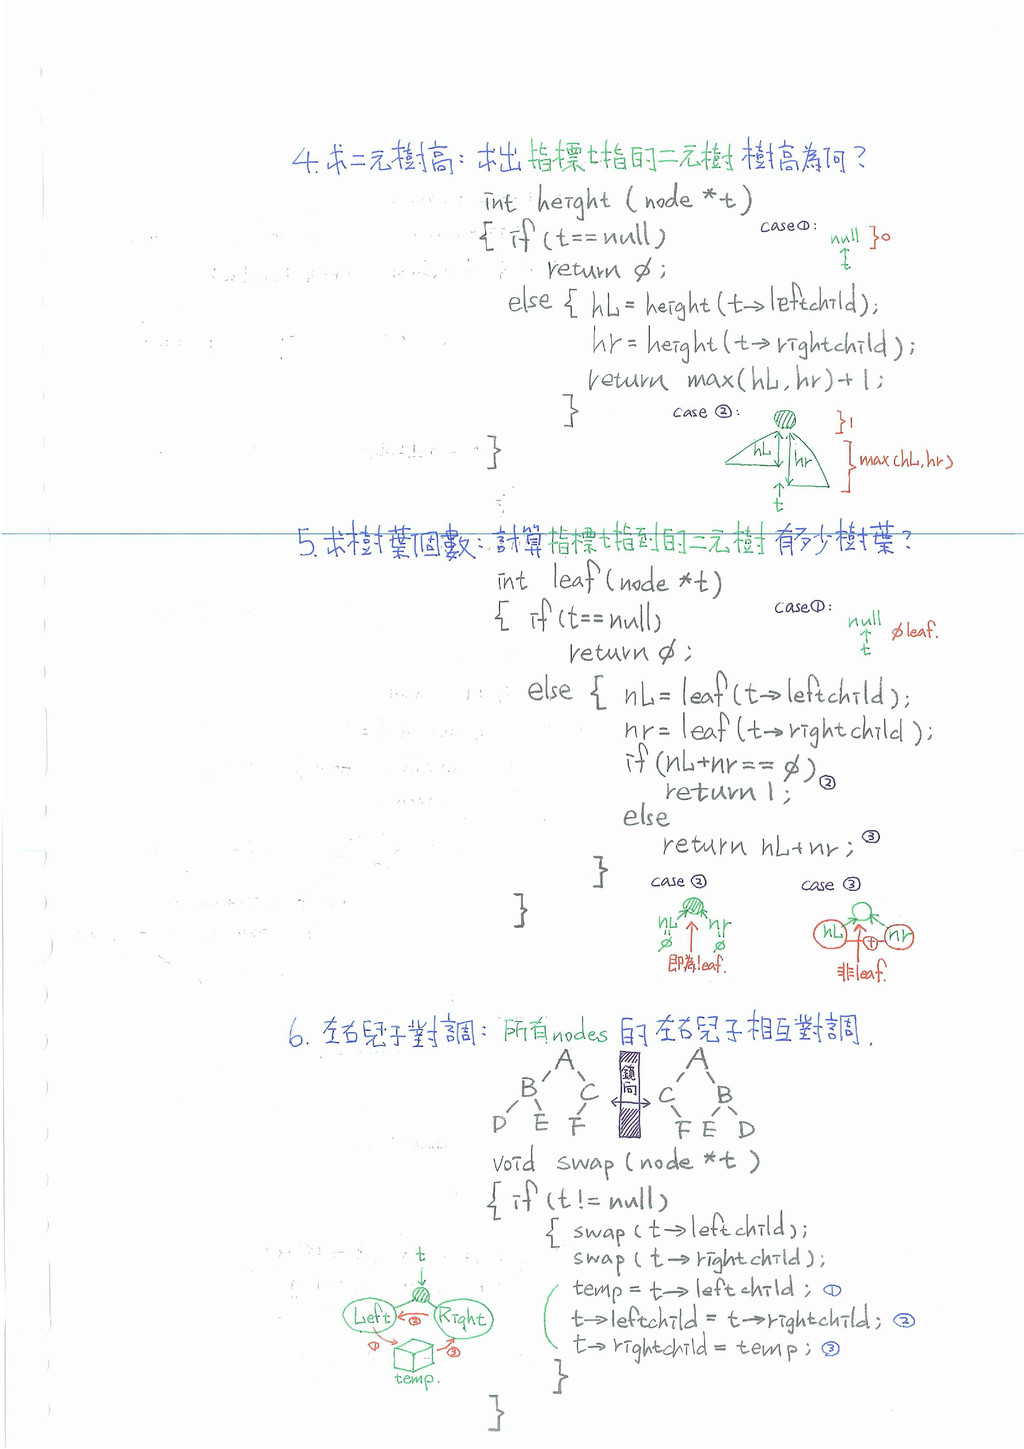 4. 求二元樹高：求出指標t指的二元樹樹高為何？
int height (node *t)
{ if (t==null)
case①:
null }0
↑
t
return ϕ;
else { hL = height (t→leftchild);
hr = height (t→rightchild);
return max(hL,hr)+1;
}
case②:
}1
hL hr
} max(hL,hr)
↑
t
}
5. 求樹葉個數：計算指標t指到的二元樹有多少樹葉？
int leaf (node *t)
{ if (t==null)
case①:
null ϕ leaf.
↑
t
return ϕ;
else { nL = leaf (t→leftchild);
nr = leaf (t→rightchild);
if (nL+nr == ϕ)
return 1; ②
else
return nL+nr; ③
}
}
case②
nL nr
ϕ ϕ
即為leaf.
case③
nL + nr
非leaf.
6. 左右兒子對調：所有nodes的左右兒子相互對調.
A
B C
D E F
鏡向
A
C B
F E D
void swap (node *t)
{ if (t != null)
{ swap (t→leftchild);
swap (t→rightchild);
temp = t→leftchild; ①
t→leftchild = t→rightchild; ②
t→rightchild = temp; ③
}
}
t
Left ② Right
① ③
temp.